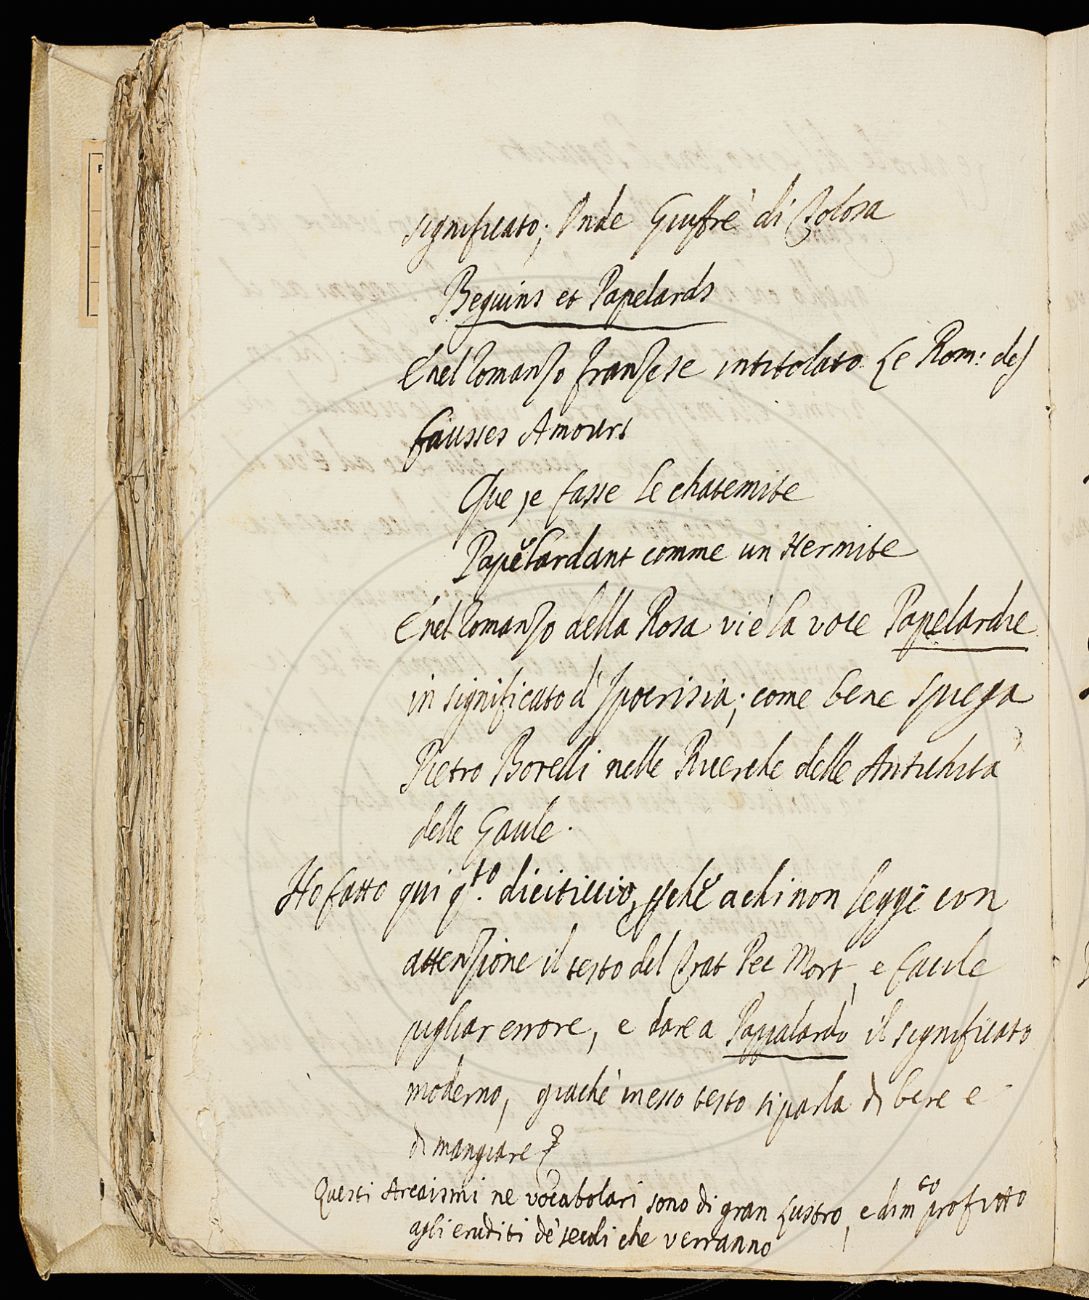 significato; Onde Giuffrè di Tolosa
Beguins et Papelards
E nel Romanzo franzese intitolato Le Rom: des
fausses Amours
Que je fasse le chatemite
Papelardant comme un Hermite
E nel Romanzo della Rosa vi è la voce Papelardie
in significato d'Ipocrisia; come bene spiega
Pietro Borelli nelle Ricerche delle Antichita
delle Gaule.
Ho fatto qui q.to diciticcio, pche a chi non legge con
attenzione il testo del Trat Pec Mort, e facile
pigliar errore, e dare a Pappalardo il significato
moderno, giachè in esso testo si parla di bere e
di mangiare
Questi Arcaismi ne vocabolari sono di gran lustro, e di m.to profitto
agli eruditi de' secoli che verranno